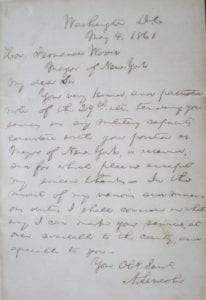 Washington D.C.
May 4. 1861
Hon. Fernando Wood
Mayor of New York
My dear Sir
Your very kind and patriotic
note of the 29th ult. tendering your
services in any military capacity
consistent with your position as
Mayor of New York is received,
and for which please accept
my sincere thanks. In the
midst of my various and numer-
ous duties I shall consider in what
way I can make your services at
once available to the country, and
agreeable to you.
Your Obt. Servt.
A. Lincoln